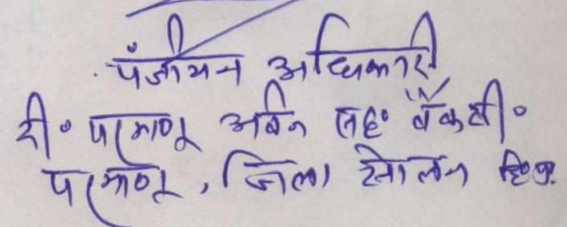 पंजीयन अधिकारी
दी॰ परमाणू अर्बन सह॰ बैंक ली॰
परमाणू, जिला सोलन हि॰प्र.